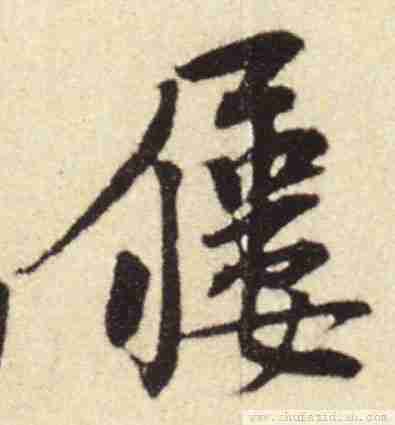 僂
www.shufazidian.com